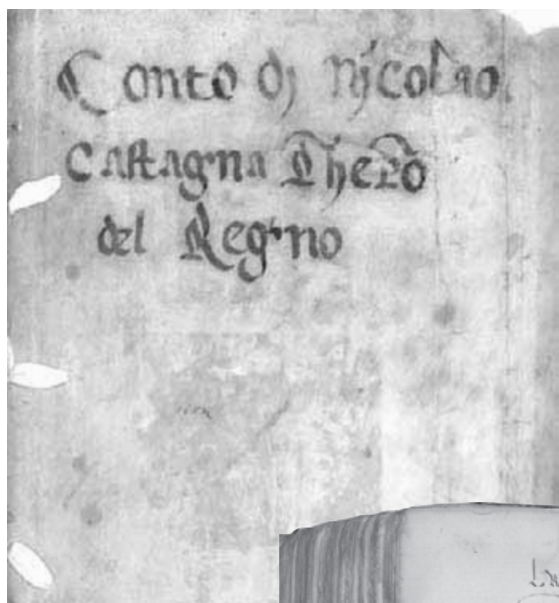 Conto dj Njcolao
Castagna Thero
del Regno